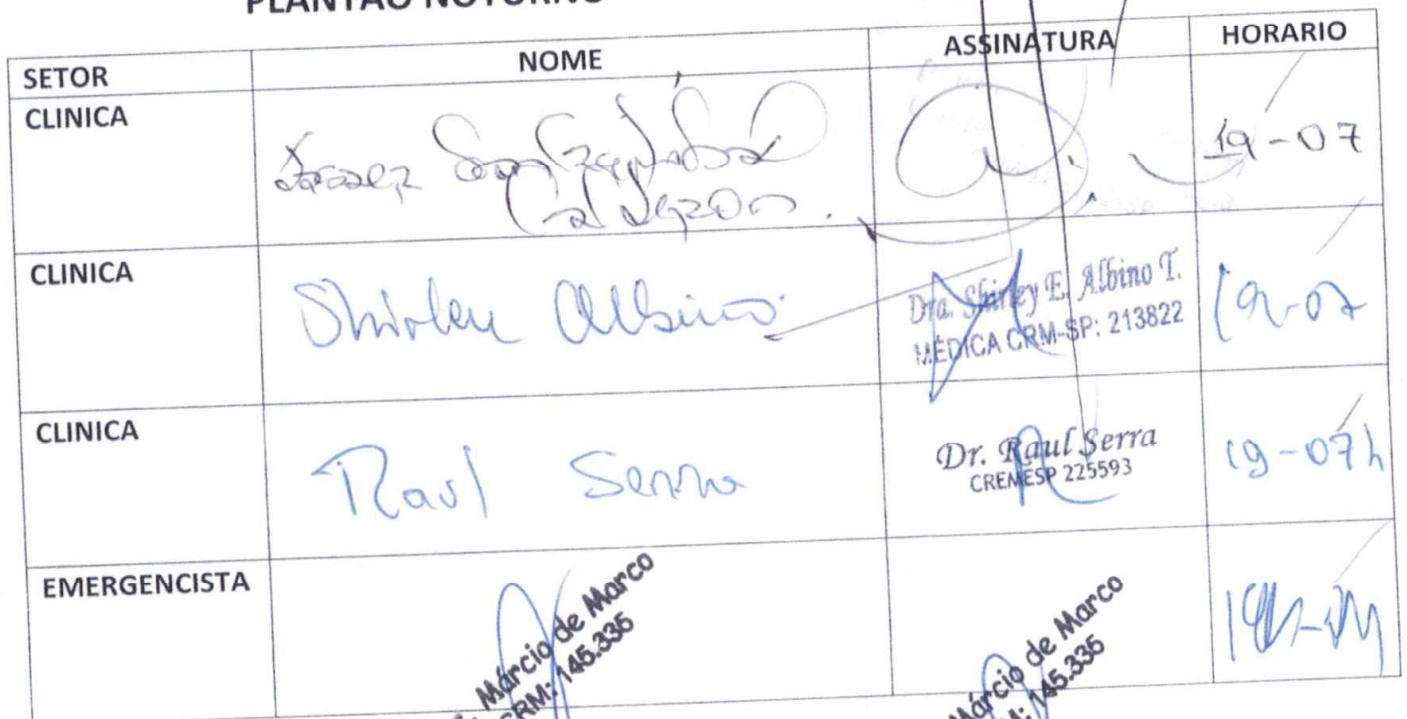 PLANTÃO NOTURNO
SETOR NOME ASSINATURA HORARIO
CLINICA 19-07
Calderon.
CLINICA Shirley Albino Dra. Shirley E. Albino T. 19-07
MÉDICA CRM-SP: 213822
CLINICA Raul Serra Dr. Raul Serra 19-07h
CREMESP 225593
EMERGENCISTA Márcio de Marco Márcio de Marco
CRM: 145.335 M: 145.335